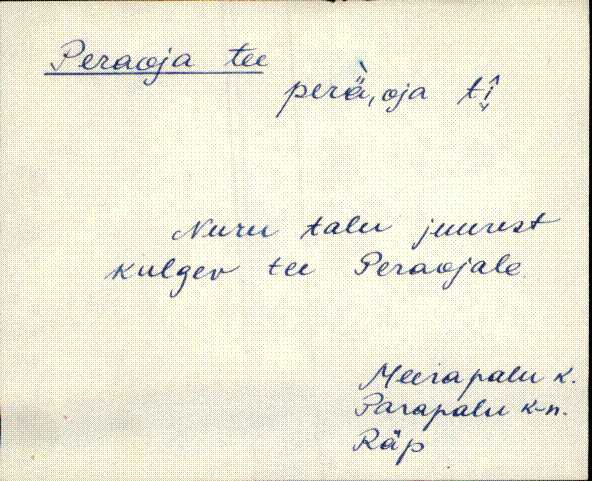 Peraoja tee
perä̀, oja tî̬
Nuru talu juurest
kulgev tee Peraojale
Meerapalu k.
Parapalu k-n.
Räp